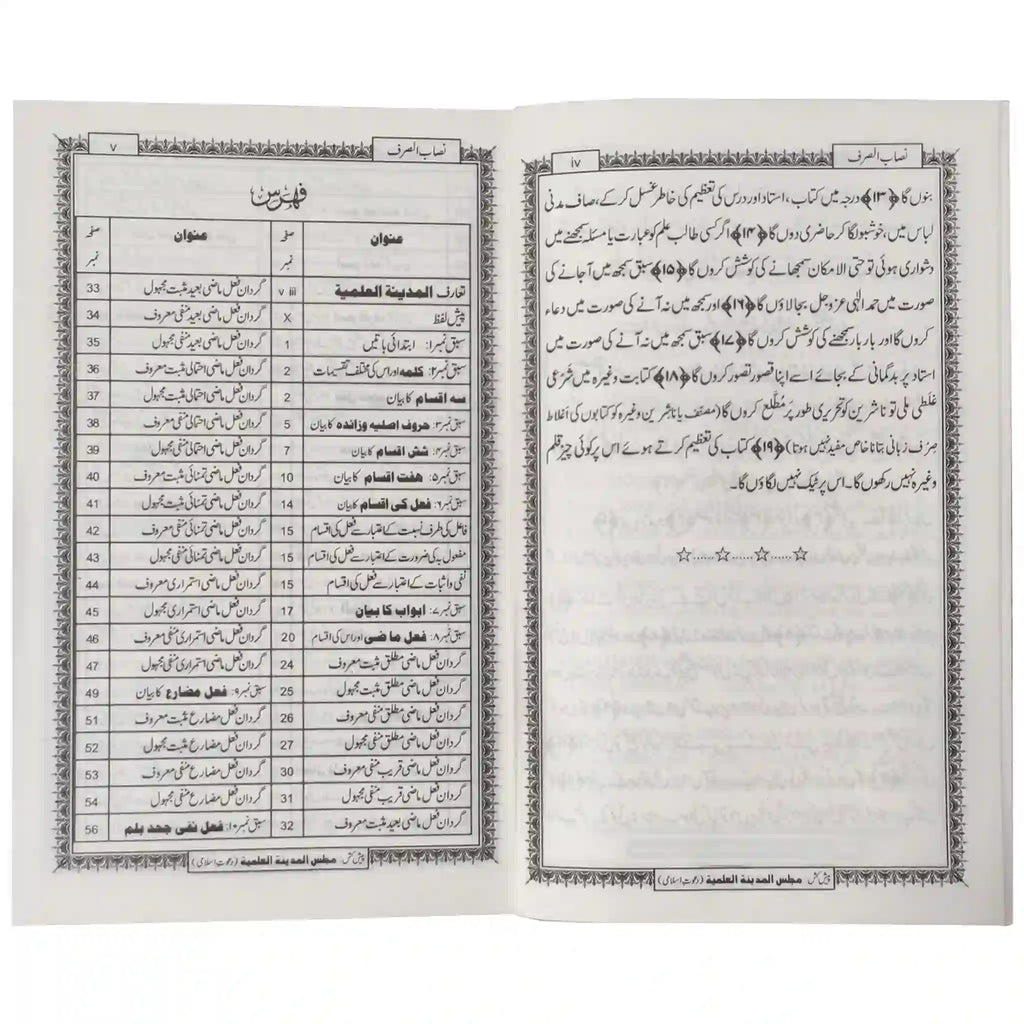 نصاب الصرف
iv
بنوں گا ﴿۱۳﴾ درجہ میں کتاب، استاد اور درس کی تعظیم کی خاطر غسل کر کے، صاف مدنی
لباس میں، خوشبو لگا کر حاضری دوں گا ﴿۱۴﴾ اگر کسی طالب علم کو عبارت یا مسئلہ سمجھنے میں
دشواری ہوئی تو حتی الامکان سمجھانے کی کوشش کروں گا ﴿۱۵﴾ سبق سمجھ میں آ جانے کی
صورت میں حمد الٰہی عزوجل بجا لاؤں گا ﴿۱۶﴾ اور سمجھ میں نہ آنے کی صورت میں دعاء
کروں گا اور بار بار سمجھنے کی کوشش کروں گا ﴿۱۷﴾ سبق سمجھ میں نہ آنے کی صورت میں
استاد پر بدگمانی کے بجائے اسے اپنا قصور تصور کروں گا ﴿۱۸﴾ کتابت وغیرہ میں شرعی
غلطی ملی تو ناشرین کو تحریری طور پر مُطَّلع کروں گا (مصنف یا ناشرین وغیرہ کو کتابوں کی اغلاط
صرف زبانی بتانا خاص مفید نہیں ہوتا) ﴿۱۹﴾ کتاب کی تعظیم کرتے ہوئے اس پر کوئی چیز قلم
وغیرہ نہیں رکھوں گا۔ اس پر ٹیک نہیں لگاؤں گا۔
☆.....☆.....☆.....☆
پیش کش: مجلس المدینۃ العلمیۃ (دعوت اسلامی)
نصاب الصرف
v
فہرس
عنوان صفحہ نمبر عنوان صفحہ نمبر
تعارف المدینۃ العلمیۃ v iii گردان فعل ماضی بعید مثبت مجہول 33
پیش لفظ X گردان فعل ماضی بعید منفی معروف 34
سبق نمبر۱: ابتدائی باتیں 1 گردان فعل ماضی بعید منفی مجہول 35
سبق نمبر۲: کلمہ اور اس کی مختلف تقسیمات 2 گردان فعل ماضی احتمالی مثبت معروف 36
سہ اقسام کا بیان 2 گردان فعل ماضی احتمالی مثبت مجہول 37
سبق نمبر۳: حروف اصلیہ وزائدہ کا بیان 5 گردان فعل ماضی احتمالی منفی معروف 38
سبق نمبر۴: شش اقسام کا بیان 7 گردان فعل ماضی احتمالی منفی مجہول 39
سبق نمبر۵: ہفت اقسام کا بیان 10 گردان فعل ماضی تمنائی مثبت معروف 40
سبق نمبر۶: فعل کی اقسام کا بیان 14 گردان فعل ماضی تمنائی مثبت مجہول 41
فاعل کی طرف نسبت کے اعتبار سے فعل کی اقسام 15 گردان فعل ماضی تمنائی منفی معروف 42
مفعول بہ کی ضرورت کے اعتبار سے فعل کی اقسام 15 گردان فعل ماضی تمنائی منفی مجہول 43
نفی واثبات کے اعتبار سے فعل کی اقسام 15 گردان فعل ماضی استمراری مثبت معروف 44
سبق نمبر۷: ابواب کا بیان 17 گردان فعل ماضی استمراری مثبت مجہول 45
سبق نمبر۸: فعل ماضی اور اس کی اقسام 20 گردان فعل ماضی استمراری منفی معروف 46
گردان فعل ماضی مطلق مثبت معروف 24 گردان فعل ماضی استمراری منفی مجہول 47
گردان فعل ماضی مطلق مثبت مجہول 25 سبق نمبر۹: فعل مضارع کا بیان 49
گردان فعل ماضی مطلق منفی معروف 26 گردان فعل مضارع مثبت معروف 51
گردان فعل ماضی مطلق منفی مجہول 27 گردان فعل مضارع مثبت مجہول 52
گردان فعل ماضی قریب منفی معروف 30 گردان فعل مضارع منفی معروف 53
گردان فعل ماضی قریب منفی مجہول 31 گردان فعل مضارع منفی مجہول 54
گردان فعل ماضی بعید مثبت معروف 32 سبق نمبر۱۰: فعل نفی جحد بلم 56
پیش کش: مجلس المدینۃ العلمیۃ (دعوت اسلامی)